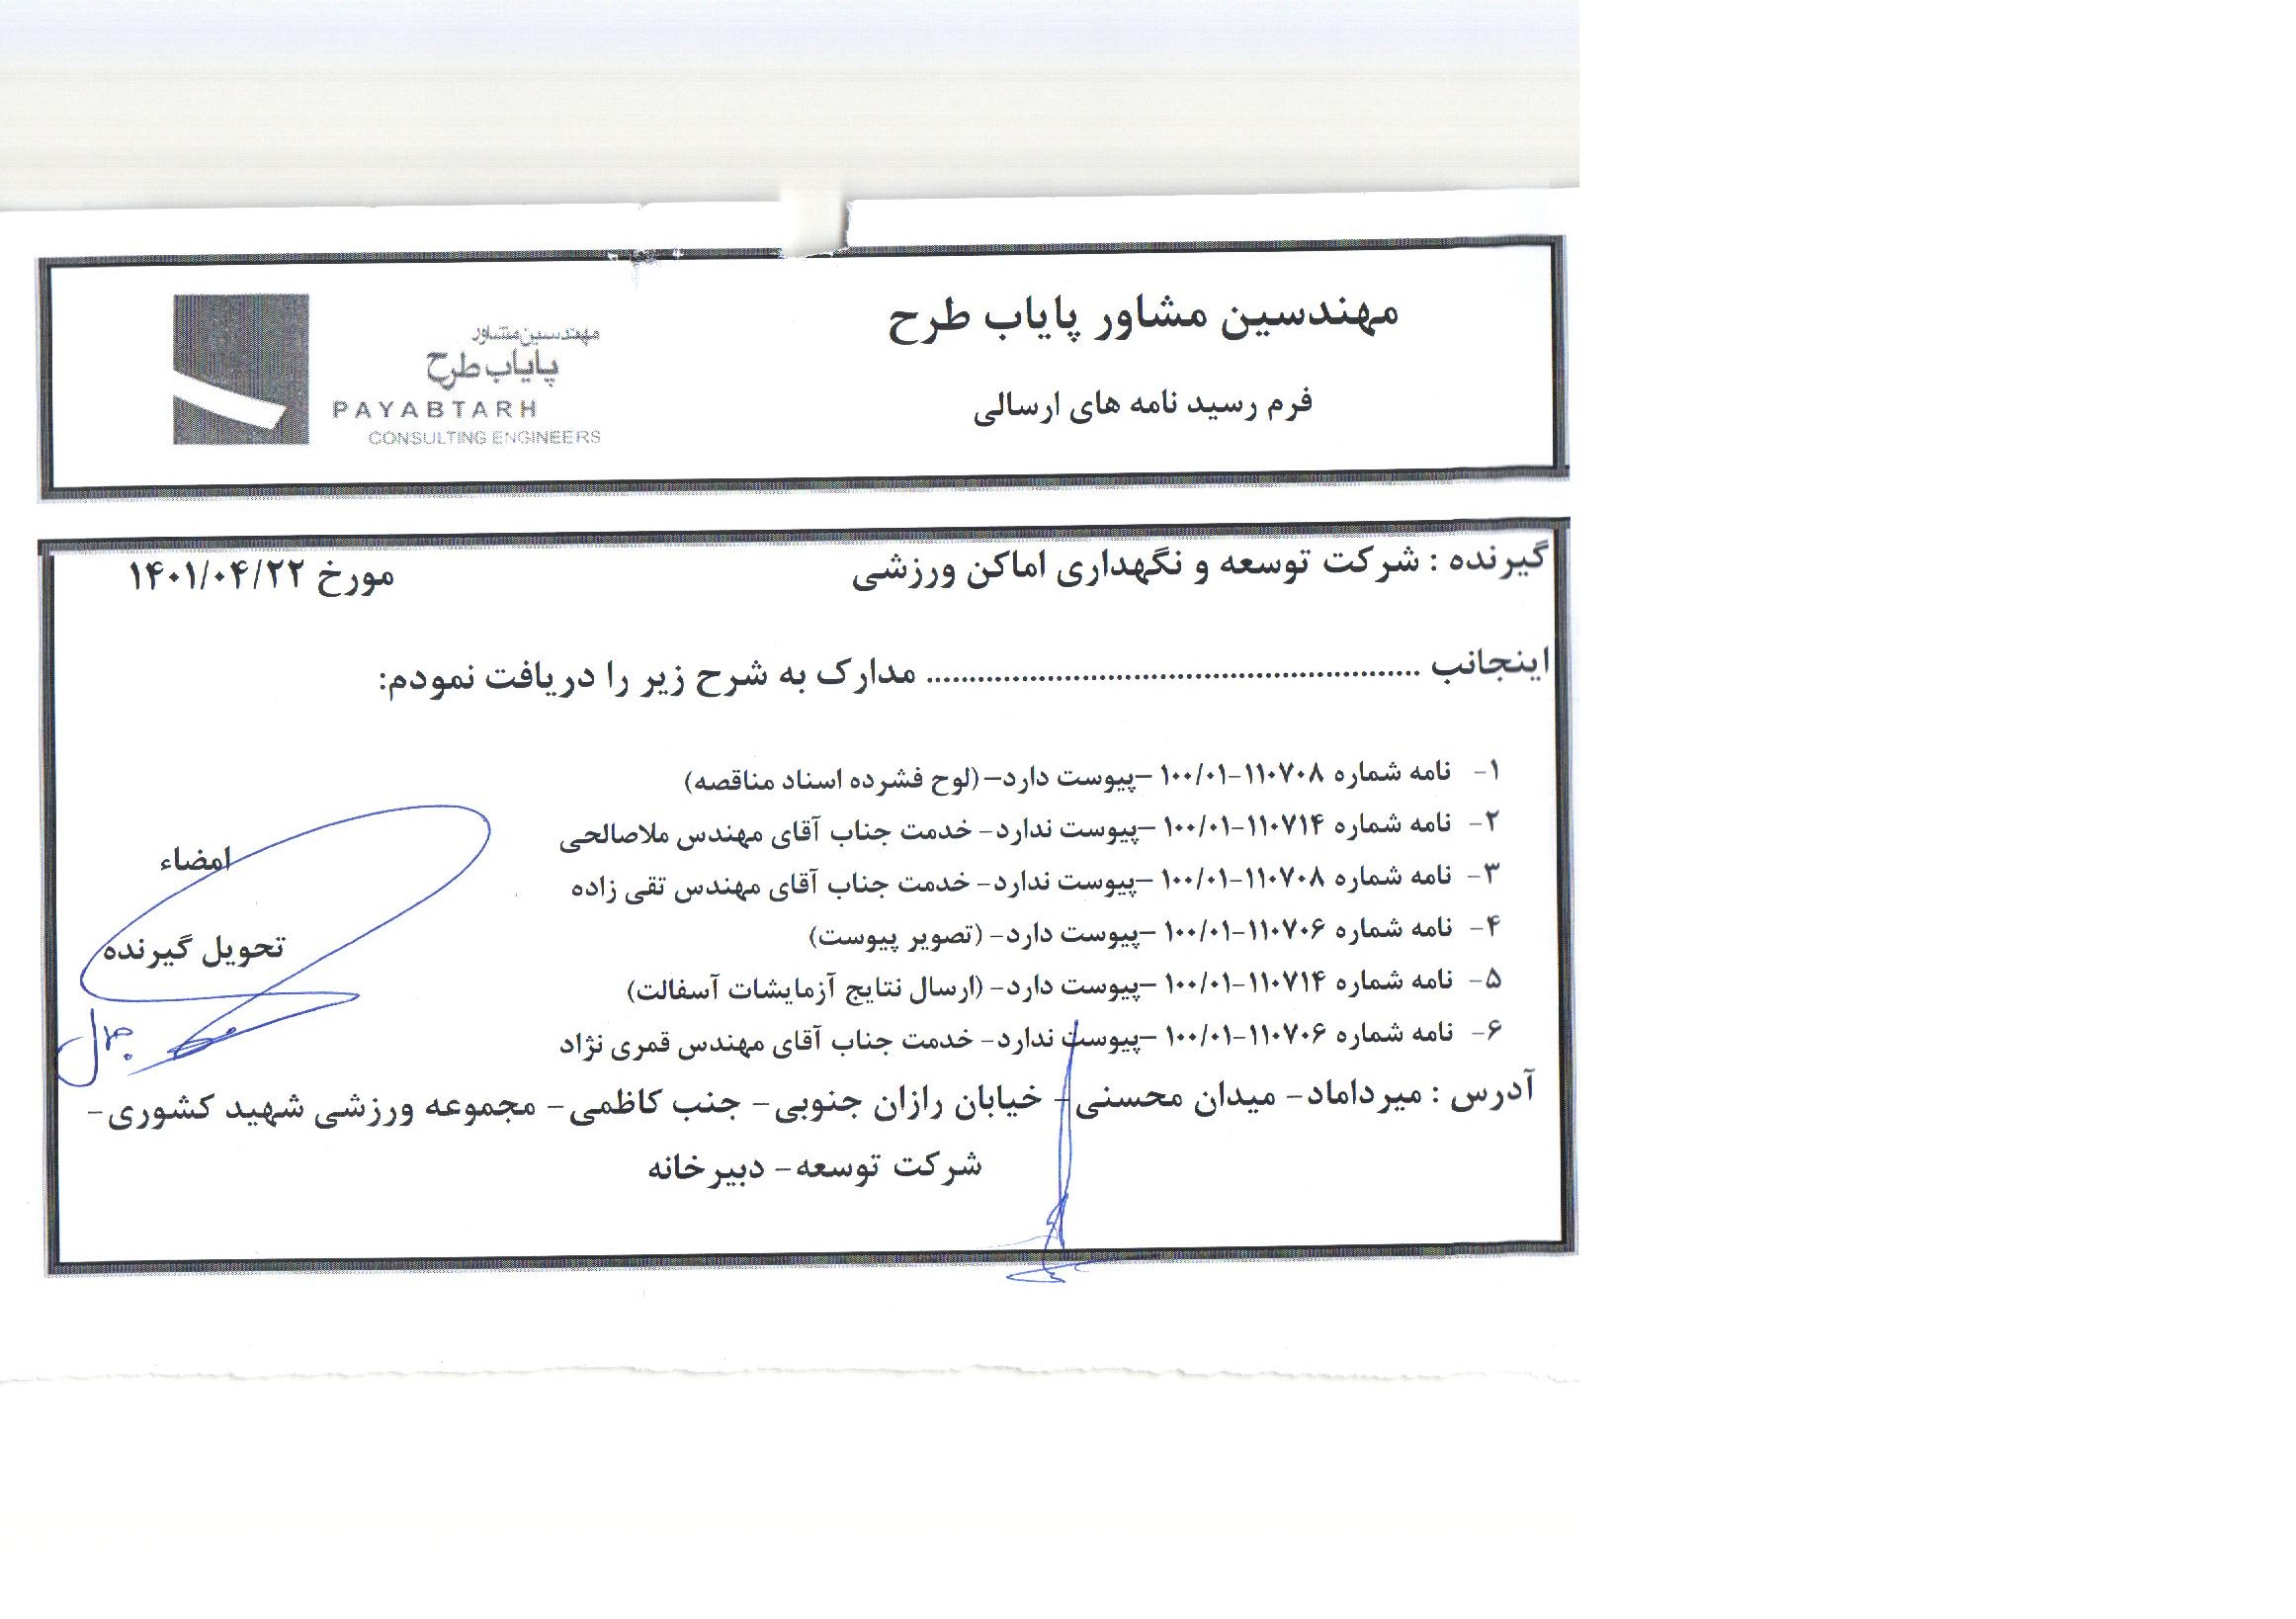 مهندسین مشاور پایاب طرح
فرم رسید نامه های ارسالی
مهندسین مشاور
پایاب طرح
PAYABTARH
CONSULTING ENGINEERS
گیرنده : شرکت توسعه و نگهداری اماکن ورزشی مورخ ۱۴۰۱/۰۴/۲۲
اینجانب ........................................................ مدارک به شرح زیر را دریافت نمودم:
۱- نامه شماره ۱۱۰۷۰۸-۱۰۰/۰۱ –پیوست دارد– (لوح فشرده اسناد مناقصه)
۲- نامه شماره ۱۱۰۷۱۴-۱۰۰/۰۱ –پیوست ندارد- خدمت جناب آقای مهندس ملاصالحی
۳- نامه شماره ۱۱۰۷۰۸-۱۰۰/۰۱ –پیوست ندارد- خدمت جناب آقای مهندس تقی زاده
۴- نامه شماره ۱۱۰۷۰۶-۱۰۰/۰۱ –پیوست دارد- (تصویر پیوست)
۵- نامه شماره ۱۱۰۷۱۴-۱۰۰/۰۱ –پیوست دارد- (ارسال نتایج آزمایشات آسفالت)
۶- نامه شماره ۱۱۰۷۰۶-۱۰۰/۰۱ –پیوست ندارد- خدمت جناب آقای مهندس قمری نژاد
امضاء
تحویل گیرنده
آدرس : میرداماد- میدان محسنی- خیابان رازان جنوبی- جنب کاظمی- مجموعه ورزشی شهید کشوری-
شرکت توسعه- دبیرخانه